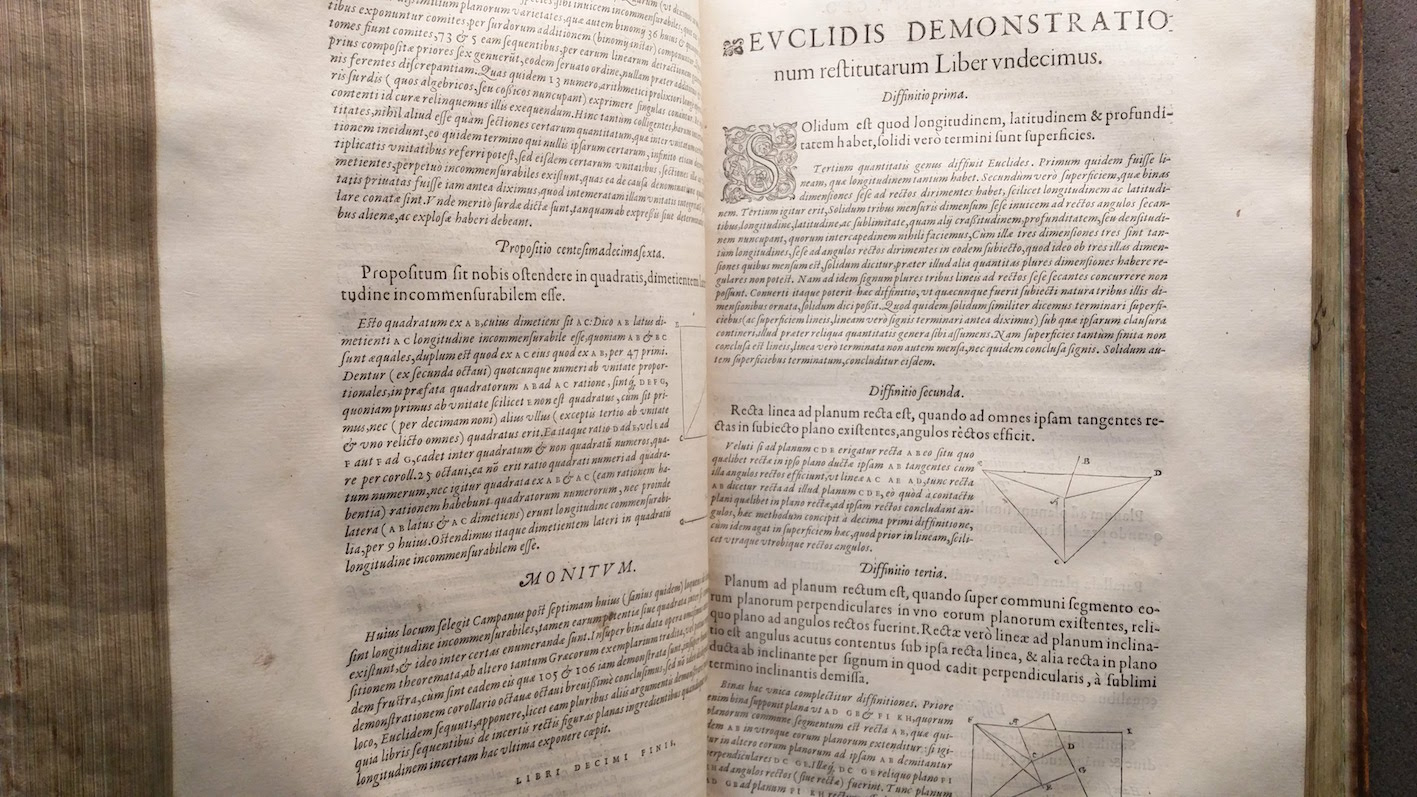 tibus exponuntur comites, per surdorum additionem (binomy instar) componuntur.
tomes fiunt comites, 73 & 5 eam sequentibus, per earum linearum detractionem
prius compositæ priores sex genuerūt, eodem seruato ordine, nullam præter additionis
nis ferentes discrepantiam. Quas quidem 13 numero, arithmetici prolixiori
ris surdis (quos algebricos, seu cossicos nuncupant) exprimere singulas
contenti id curæ relinquemus illis exequendum. Hinc tantum colligentes, harum
titates, nihil aliud esse quàm sectiones certarum quantitatum, quæ inter
tionem incidunt, eo quidem termino qui nullis ipsarum certarum, infinito etiam
tiplicatis vnitatibus referri potest, sed eisdem certarum vnitatibus, sectiones illæ
metientes, perpetuò incommensurabiles existunt, quas ea de causa denominatione
tatis priuatas fuisse iam antea diximus, quod intemeratam illam vnitatis integritatem
lare conatæ sint. Vnde meritò surdæ dictæ sunt, tanquam ab expressis siue
bus alienæ, ac explosæ haberi debeant.
Propositio centesimadecimasexta.
Propositum sit nobis ostendere in quadratis, dimetientem
tudine incommensurabilem esse.
Esto quadratum ex AB, cuius dimetiens sit AC: Dico AB latus di-
metienti AC longitudine incommensurabile esse, quoniam AB & BC
sunt æquales, duplum est quod ex AC eius quod ex AB, per 47 primi.
Dentur (ex secunda octaui) quotcunque numeri ab vnitate propor-
tionales, in præfata quadratorum AB ad AC ratione, sintq́; DEFG,
quoniam primus ab vnitate scilicet E non est quadratus, cùm sit pri-
mus, nec (per decimam noni) alius vllus (exceptis tertio ab vnitate
& vno relicto omnes) quadratus erit. Ea itaque ratio D ad E, vel E ad
F aut F ad G, cadet inter quadratum & non quadratū numeros, qua-
re per coroll. 25 octaui, ea nō erit ratio quadrati numeri ad quadra-
tum numerum, nec igitur quadrata ex AB & AC (eam rationem ha-
bentia) rationem habebunt quadratorum numerorum, nec proinde
latera (AB latus & AC dimetiens) erunt longitudine commensurabi-
lia, per 9 huius. Ostendimus itaque dimetientem lateri in quadratis
longitudine incommensurabilem esse.
MONITVM.
Huius locum selegit Campanus post septimam huius (sanius quidem)
sint longitudine incommensurabiles, tamen earum potentiæ siue quadrata inter se
existunt, & ideo inter certas enumerandæ sunt. Insuper bina data opera omisimus
sitionem theoremata, ab altero tantum Græcorum exemplarium tradita,
dem frustra, cùm sint eadem eis quæ 105 & 106 iam demonstrata sunt,
demonstrationem corollario octauæ octaui breuissimè conclusimus, sed nō
loco, Euclidem sequuti, apponere, licet eam pluribus aliis argumentis
quia libris sequentibus de incertis rectis figuras planas ingredientibus
longitudinem incertam hac vltima exponere cæpit.
LIBRI DECIMI FINIS.
EVCLIDIS DEMONSTRATIO-
num restitutarum Liber vndecimus.
Diffinitio prima.
SOlidum est quod longitudinem, latitudinem & profundi-
tatem habet, solidi verò termini sunt superficies.
Tertium quantitatis genus diffinit Euclides. Primum quidem fuisse li-
neam, quæ longitudinem tantum habet. Secundùm verò superficiem, quæ binas
dimensiones sese ad rectos dirimentes habet, scilicet longitudinem ac latitudi-
nem. Tertium igitur erit, Solidum tribus mensuris dimensum sese inuicem ad rectos angulos secan-
tibus, longitudine, latitudine, ac sublimitate, quam alij crassitudinem, profunditatem, seu densitudi-
nem nuncupant, quorum intercapedinem nihili faciemus, Cùm illæ tres dimensiones tres sint tan-
tum longitudines, sese ad angulos rectos dirimentes in eodem subiecto, quod ideo ob tres illas dimen-
siones quibus mensum est, solidum dicitur, præter illud alia quantitas plures dimensiones habere re-
gulares non potest. Nam ad idem signum plures tribus lineis ad rectos sese secantes concurrere non
possunt. Conuerti itaque poterit hæc diffinitio, vt quæcunque fuerit subiecti natura tribus illis di-
mensionibus ornata, solidum dici possit. Quod quidem solidum similiter dicemus terminari superfi-
ciebus (ac superficiem lineis, lineam verò signis terminari antea diximus) sub quæ ipsarum clausura
contineri, illud præter reliqua quantitatis genera sibi assumens. Nam superficies tantum finita non
conclusa est lineis, linea verò terminata non autem mensa, nec quidem conclusa signis. Solidum au-
tem superficiebus terminatum, concluditur eisdem.
Diffinitio secunda.
Recta linea ad planum recta est, quando ad omnes ipsam tangentes re-
ctas in subiecto plano existentes, angulos rectos efficit.
Veluti si ad planum CDE erigatur recta AB eo situ quo
quælibet rectæ in ipso plano ductæ ipsam AB tangentes cum
illa angulos rectos efficiunt, vt lineæ AC AE AD, tunc recta
AB dicetur recta ad illud planum CDE, eo quòd a contactu
plani quælibet in plano rectæ, ad ipsam rectos concludant an-
gulos, hæc methodum concipit a decima primi diffinitione,
cùm idem agat in superficiem hæc, quod prior in lineam, scili-
cet vtraque vtrobique rectos angulos.
E B D
A
C
Diffinitio tertia.
Planum ad planum rectum est, quando super communi segmento eo-
rum planorum perpendiculares in vno eorum planorum existentes, reli-
quo plano ad angulos rectos fuerint. Rectæ verò lineæ ad planum inclina-
tio est angulus acutus contentus sub ipsa recta linea, & alia recta in plano
ducta ab inclinante per signum in quod cadit perpendicularis, à sublimi
termino inclinantis demissa.
Binas hæc vnica complectitur diffinitiones. Priore
enim bina supponit plana vt AD GB & FI KH, quorum
planorum commune segmentum est recta AB, quæ qui-
dem AB in vtroque eorum planorum extenditur: si igi-
tur in altero eorum planorum ad ipsam AB demitantur
perpendiculares DC GE. Illæq́; DC GE reliquo plano FI
ad angulos rectos (siue rectæ) fuerint. Tunc planum
F A I
D
C G